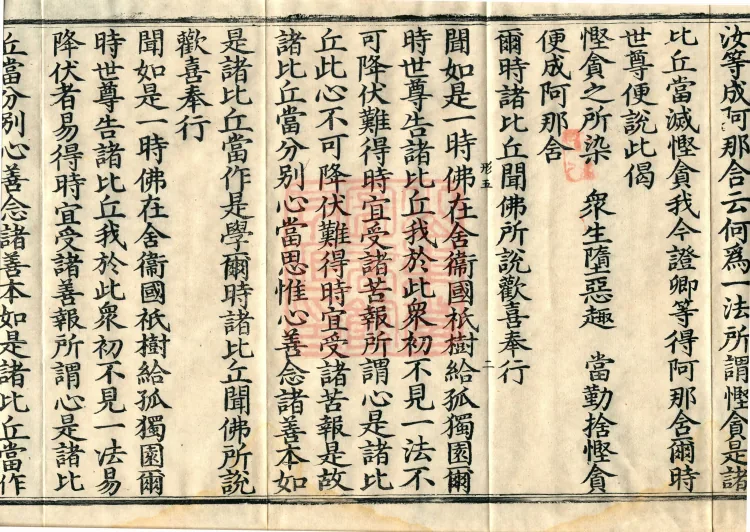 汝等成阿那含云何爲一法所謂慳貪是諸
比丘當滅慳貪我今證卿等得阿那舍爾時
世尊便說此偈
慳貪之所染　衆生墮惡趣　當勤捨慳貪
便成阿那舍
爾時諸比丘聞佛所說歡喜奉行
形五
二
聞如是一時佛在舍衞國祇樹給孤獨園爾
時世尊告諸比丘我於此衆初不見一法不
可降伏難得時宜受諸苦報所謂心是諸比
丘此心不可降伏難得時宜受諸苦報是故
諸比丘當分別心當思惟心善念諸善本如
是諸比丘當作是學爾時諸比丘聞佛所說
歡喜奉行
聞如是一時佛在舍衞國祇樹給孤獨園爾
時世尊告諸比丘我於此衆初不見一法易
降伏者易得時宜受諸善報所謂心是諸比
丘當分別心善念諸善本如是諸比丘當作